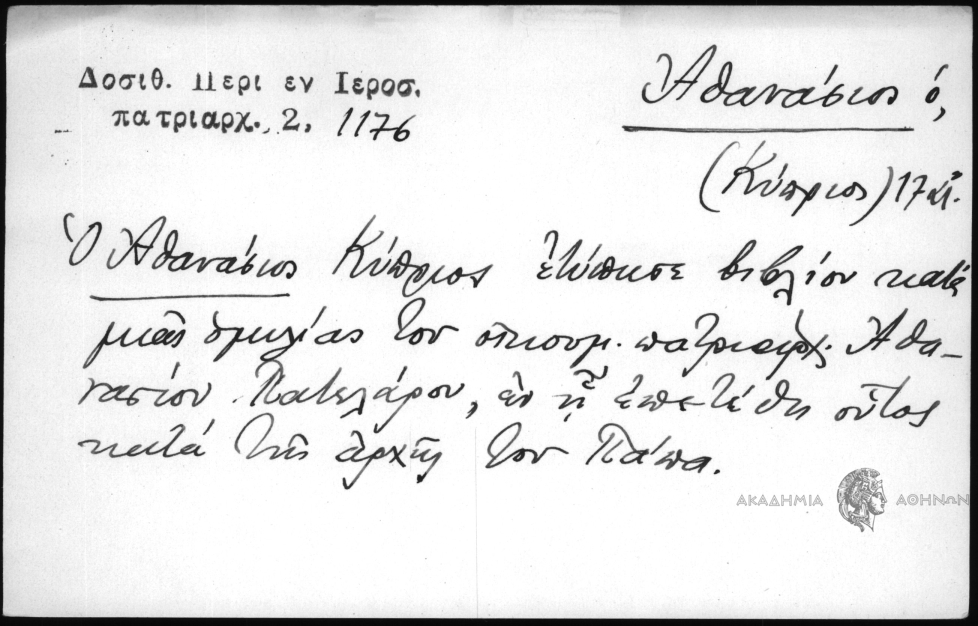 Δοσιθ. Περι εν Ιεροσ.
πατριαρχ., 2. 1176
Ἀθανάσιος ὁ,
(Κύπριος) 17 αἰ.
Ὁ Ἀθανάσιος Κύπριος ἐτύπησε βιβλίον κατά
μιᾶς ὁμιλίας του οἰκουμ. πατριαρχ. Ἀθα-
νασίου Πατελάρου, ἐν ᾗ ἐπετέθη οὗτος
κατά τῆς ἀρχῆς του Πάπα.
ΑΚΑΔΗΜΙΑ ΑΘΗΝΩΝ